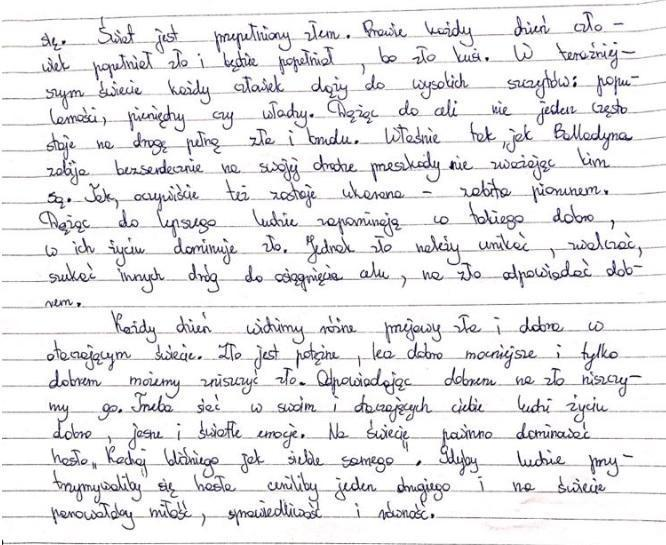 się. Świat jest przepełniony złem. Prawie każdy dzień czło-
wiek popełniał zło i będzie popełniał, bo zło kusi. W teraźniej-
szym świecie każdy człowiek dąży do wysokich szczytów: popu-
larności, pieniędzy czy władzy. Dążąc do celi nie jeden często
staje na drogę pełną zła i brudu. Właśnie tak, jak Balladyna
zabija bezserdecznie na swojej drodze przeszkody nie zważając kim
są. Tak, oczywiście też zostaje ukarana – zabita piorunem.
Dążąc do lepszego ludzie zapominają co takiego dobro,
w ich życiu dominuje zło. Jednak zło należy unikać, zwalczać,
szukać innych dróg do osiągnięcia celu, na zło odpowiadać dob-
rem.
Każdy dzień widzimy różne przejawy zła i dobra w
otaczającym świecie. Zło jest potężne, lecz dobro mocniejsze i tylko
dobrem możemy zniszczyć zło. Odpowiadając dobrem na zło niszczy-
my go. Trzeba siać w swoim i otaczających ciebie ludzi życiu
dobro, jasne i światłe emocje. Na świecie powinno dominować
hasło „Kochaj bliźniego jak siebie samego". Gdyby ludzie przy-
trzymywaliby się hasła ceniliby jeden drugiego i na świecie
panowałaby miłość, sprawiedliwość i równość.